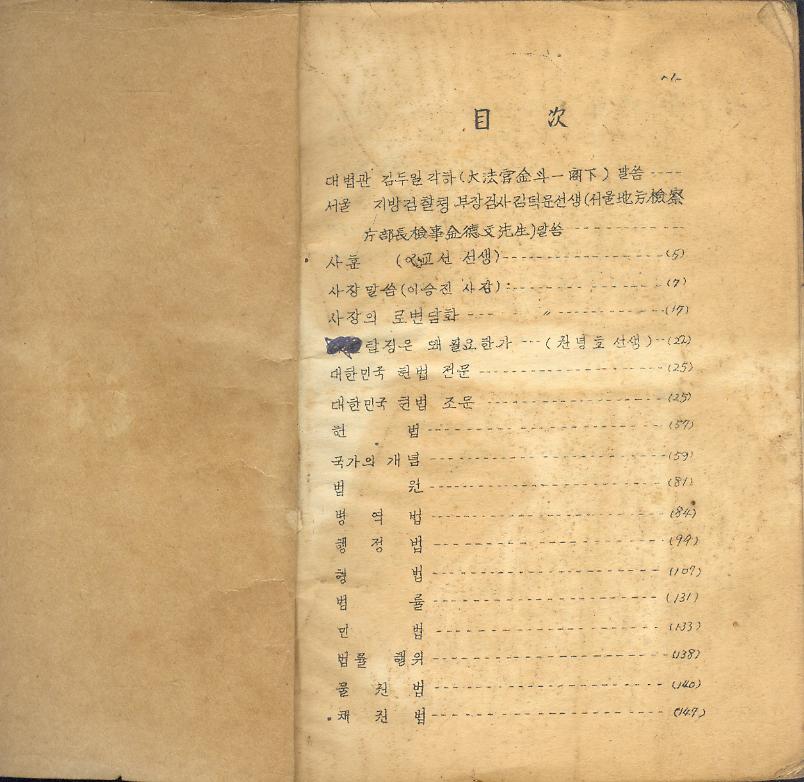 -1-
目 次
대법관 김두일 각하(大法官金斗一閣下) 말씀 ----
서울 지방검찰청 부장검사 김덕문선생(서울地方檢察
庁部長檢事金德文先生)말씀 ------------
사훈 ( 선 선생)----------------(5)
사장말씀(이승진 사장)---------------(7)
사장의 로변담화 --- 〃 ---(17)
탐정은 왜 필요한가 ---( 호 선생)--(22)
대한민국 헌법 전문 -----------------(25)
대한민국 헌법 조문 -----------------(25)
헌 법 --------------------(57)
국가의 개념 --------------------(59)
법 원 --------------------(81)
병 역 법 --------------------(84)
행 정 법 --------------------(99)
형 법 --------------------(107)
법 률 --------------------(131)
민 법 --------------------(133)
법률 행위 --------------------(138)
물 권 법 --------------------(140)
채 권 법 --------------------(147)